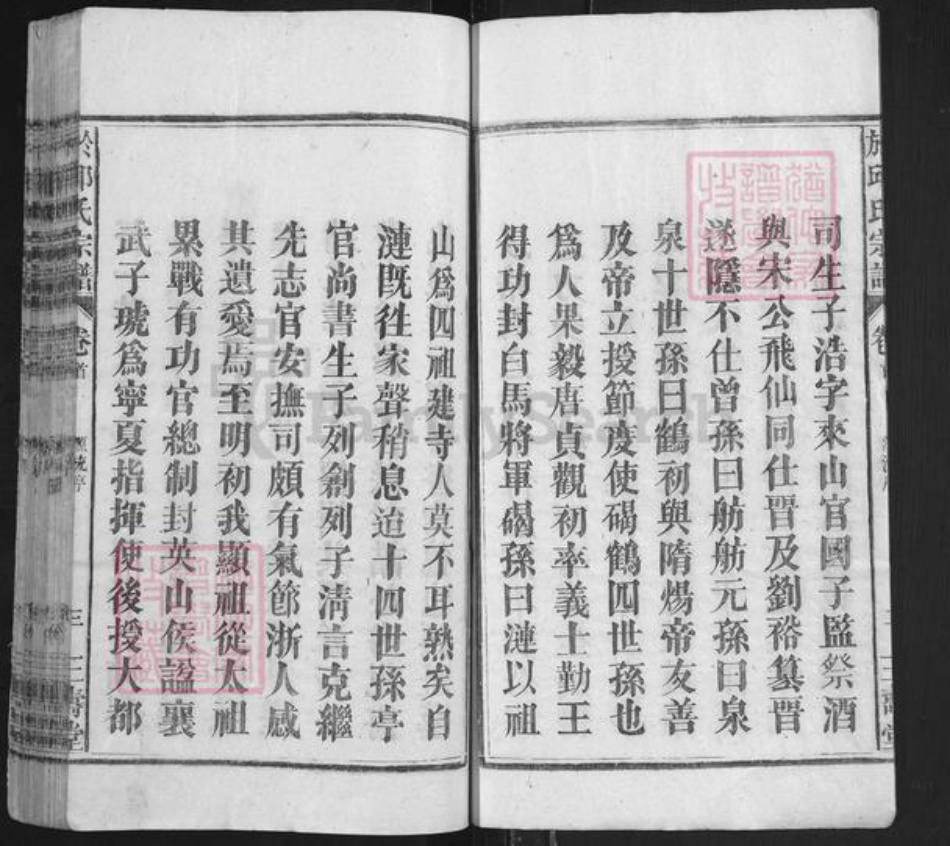 司生子浩字來山官國子監祭酒
與宋公飛仙同仕晋及劉裕簒晋
遂隱不仕曾孫曰舫舫元孫曰泉
泉十世孫曰鶴初與隋煬帝友善
及帝立授節度使碣鶴四世孫也
爲人果毅唐貞觀初率義士勤王
得功封白馬將軍碣孫曰漣以祖
山爲四祖建寺人莫不耳熟矣自
漣旣徃家聲稍息迨十四世孫亭
官尚書生子列創列子淸言克繼
先志官安撫司頗有氣節浙人感
其遺愛焉至明初我顯祖從太祖
累戰有功官總制封英山侯諡襄
武子琥爲寧夏指揮使後授大都
於邱氏宗譜
卷首
三
FamilySearch